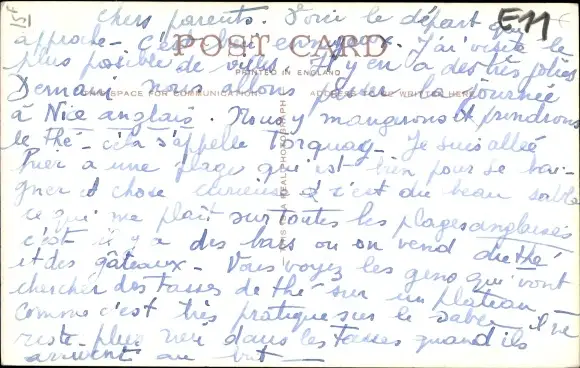 15F
E11
chers parents. Voici le départ qui
approche - c'est bien ennuyeux. J'ai visité le
POST CARD
plus possible de villes. Il y en a des très jolies
PRINTED IN ENGLAND
Demain nous allons passer la journée
SPACE FOR COMMUNICATION
ADDRESS TO BE WRITTEN HERE
à Nice anglais. Nous y mangerons et prendrons
le thé - cela s'appelle Torquay - Je suis allée
hier à une plage qui est bien pour se bai-
gner et chose curieuse c'est du beau sable
ce qui me plaît sur toutes les plages anglaises
c'est il y a des bars ou on vend du thé
et des gâteaux - Vous voyez les gens qui vont
chercher des tasses de thé sur un plateau
comme c'est très pratique sur le sable il ne
reste plus rien dans les tasses quand ils
arrivent au but -
THIS IS A REAL PHOTOGRAPH